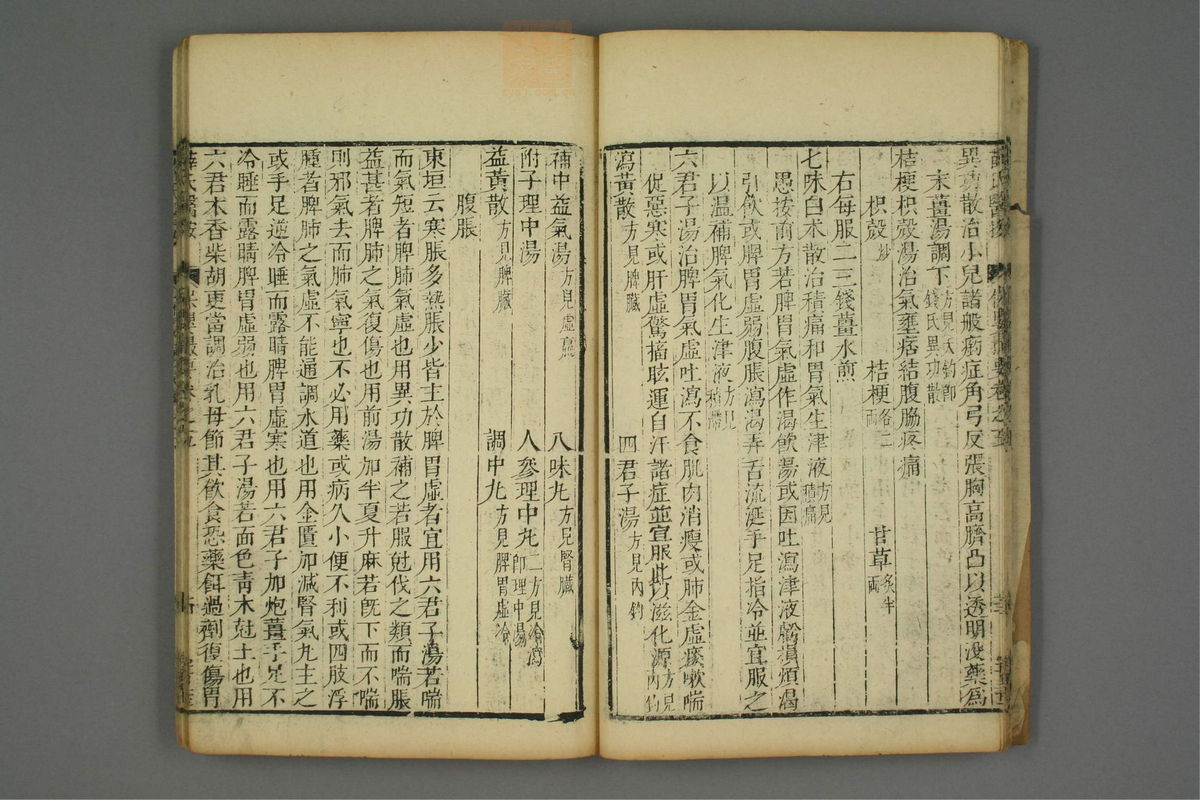 異功散治小兒諸般癇症角弓反張胸高臍凸以透明沒藥爲
末薑湯調下方見天釣卽錢氏異功散
桔梗枳殼湯治氣壅痞結腹脇疼痛
枳殼炒 桔梗各二兩 甘草炙半兩
右每服二三錢薑水煎
七味白朮散治積痛和胃氣生津液方見積痛
愚按前方若脾胃氣虛作渴飮湯或因吐瀉津液虧損煩渴
引飮或脾胃虛弱腹脹瀉渴弄舌流涎手足指冷並宜服之
以溫補脾氣化生津液方見積滯
六君子湯治脾胃氣虛吐瀉不食肌肉消瘦或肺金虛痰嗽喘
促惡寒或肝虛驚搐眩運自汗諸症並宜服此以滋化源方見內釣
瀉黃散方見脾臟 四君子湯方見內釣
補中益氣湯方見虛羸 八味丸方見腎臟
附子理中湯 人參理中丸二方見冷瀉卽理中湯
益黃散方見脾臟 調中丸方見脾胃虛冷
腹脹
東垣云寒脹多熱脹少皆主於脾胃虛者宜用六君子湯若喘
而氣短者脾肺氣虛也用異功散補之若服尅伐之類而喘脹
益甚者脾肺之氣復傷也用前湯加半夏升麻若旣下而不喘
則邪氣去而肺氣寧也不必用藥或病久小便不利或四肢浮
腫者脾肺之氣虛不能通調水道也用金匱加減腎氣丸主之
或手足逆冷睡而露睛脾胃虛寒也用六君子加炮薑手足不
冷睡而露睛脾胃虛弱也用六君子湯若面色靑木尅土也用
六君木香柴胡更當調治乳母節其飮食恐藥餌過劑復傷胃
薛氏醫按